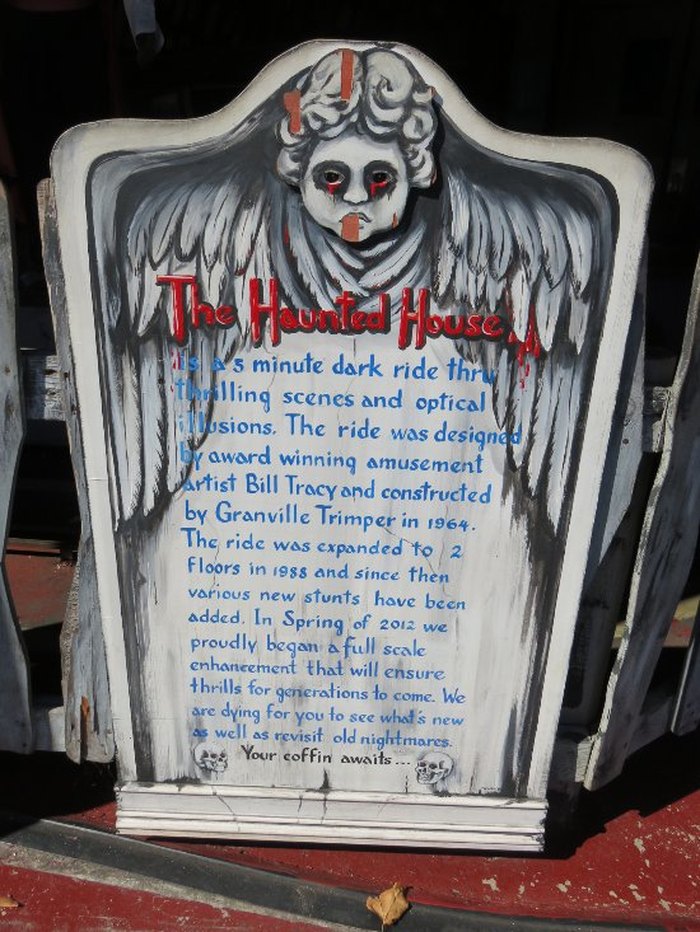 The Haunted House
is a 5 minute dark ride thru
thrilling scenes and optical
illusions. The ride was designed
by award winning amusement
artist Bill Tracy and constructed
by Granville Trimper in 1964.
The ride was expanded to 2
floors in 1988 and since then
various new stunts have been
added. In Spring of 2012 we
proudly began a full scale
enhancement that will ensure
thrills for generations to come. We
are dying for you to see what's new
as well as revisit old nightmares.
Your coffin awaits...